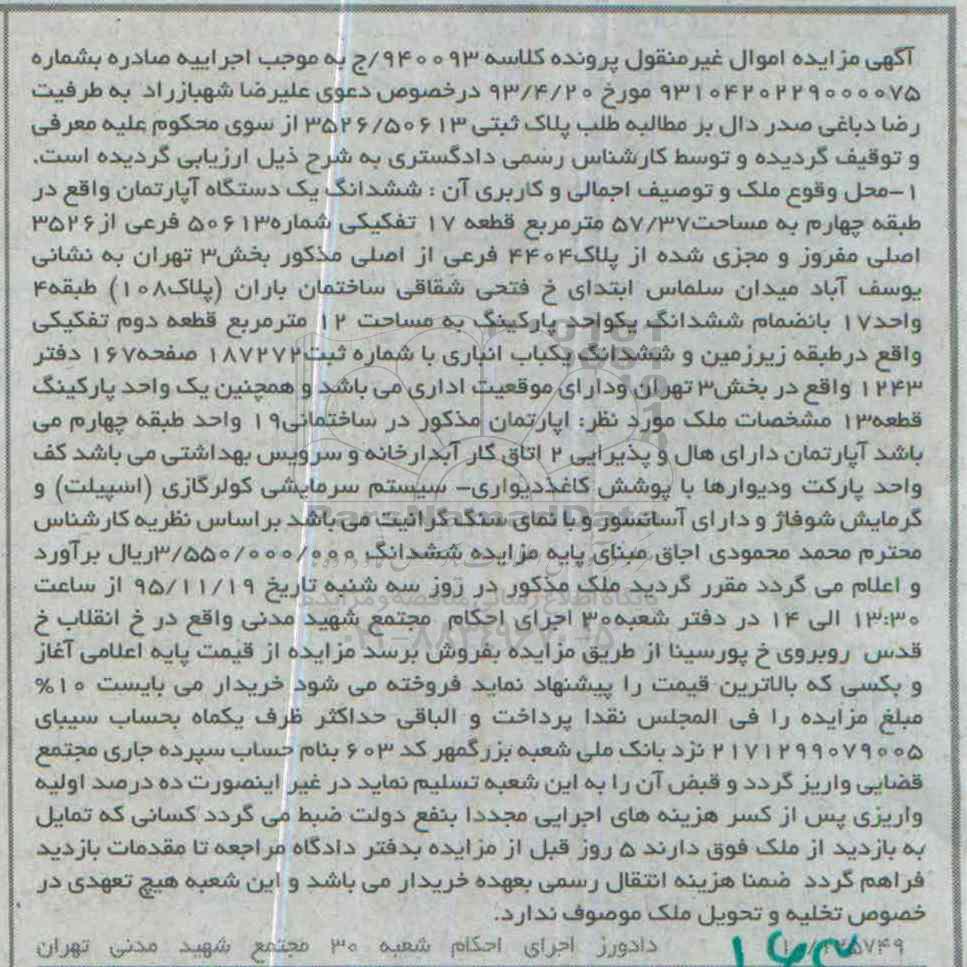 آگهی مزایده اموال غیرمنقول پرونده کلاسه ۹۴۰۰۹۳/ج به موجب اجراییه صادره بشماره
۹۳۱۰۴۲۰۲۲۹۰۰۰۰۷۵ مورخ ۹۳/۴/۲۰ درخصوص دعوی علیرضا شهبازراد به طرفیت
رضا دباغی صدر دال بر مطالبه طلب پلاک ثبتی ۳۵۲۶/۵۰۶۱۳ از سوی محکوم علیه معرفی
و توقیف گردیده و توسط کارشناس رسمی دادگستری به شرح ذیل ارزیابی گردیده است.
۱-محل وقوع ملک و توصیف اجمالی و کاربری آن : ششدانگ یک دستگاه آپارتمان واقع در
طبقه چهارم به مساحت۵۷/۳۷ مترمربع قطعه ۱۷ تفکیکی شماره۵۰۶۱۳ فرعی از۳۵۲۶
اصلی مفروز و مجزی شده از پلاک۴۴۰۴ فرعی از اصلی مذکور بخش۳ تهران به نشانی
یوسف آباد میدان سلماس ابتدای خ فتحی شقاقی ساختمان باران (پلاک۱۰۸) طبقه۴
واحد۱۷ بانضمام ششدانگ یکواحد پارکینگ به مساحت ۱۲ مترمربع قطعه دوم تفکیکی
واقع درطبقه زیرزمین و ششدانگ یکباب انباری با شماره ثبت۱۸۷۲۷۲ صفحه۱۶۷ دفتر
۱۲۴۳ واقع در بخش۳ تهران ودارای موقعیت اداری می باشد و همچنین یک واحد پارکینگ
قطعه۱۳ مشخصات ملک مورد نظر: اپارتمان مذکور در ساختمانی۱۹ واحد طبقه چهارم می
باشد آپارتمان دارای هال و پذیرایی ۲ اتاق کار آبدارخانه و سرویس بهداشتی می باشد کف
واحد پارکت ودیوارها با پوشش کاغذدیواری- سیستم سرمایشی کولرگازی (اسپیلت) و
گرمایش شوفاژ و دارای آسانسور و با نمای سنگ گرانیت می باشد براساس نظریه کارشناس
محترم محمد محمودی اجاق مبنای پایه مزایده ششدانگ ۳/۵۵۰/۰۰۰/۰۰۰ریال برآورد
و اعلام می گردد مقرر گردید ملک مذکور در روز سه شنبه تاریخ ۹۵/۱۱/۱۹ از ساعت
۱۳:۳۰ الی ۱۴ در دفتر شعبه۳۰ اجرای احکام مجتمع شهید مدنی واقع در خ انقلاب خ
قدس روبروی خ پورسینا از طریق مزایده بفروش برسد مزایده از قیمت پایه اعلامی آغاز
و بکسی که بالاترین قیمت را پیشنهاد نماید فروخته می شود خریدار می بایست ۱۰%
مبلغ مزایده را فی المجلس نقدا پرداخت و الباقی حداکثر ظرف یکماه بحساب سیبای
۲۱۷۱۲۹۹۰۷۹۰۰۵ نزد بانک ملی شعبه بزرگمهر کد ۶۰۳ بنام حساب سپرده جاری مجتمع
قضایی واریز گردد و قبض آن را به این شعبه تسلیم نماید در غیر اینصورت ده درصد اولیه
واریزی پس از کسر هزینه های اجرایی مجددا بنفع دولت ضبط می گردد کسانی که تمایل
به بازدید از ملک فوق دارند ۵ روز قبل از مزایده بدفتر دادگاه مراجعه تا مقدمات بازدید
فراهم گردد ضمنا هزینه انتقال رسمی بعهده خریدار می باشد و این شعبه هیچ تعهدی در
خصوص تخلیه و تحویل ملک موصوف ندارد.
دادورز اجرای احکام شعبه ۳۰ مجتمع شهید مدنی تهران
ParsNamadData